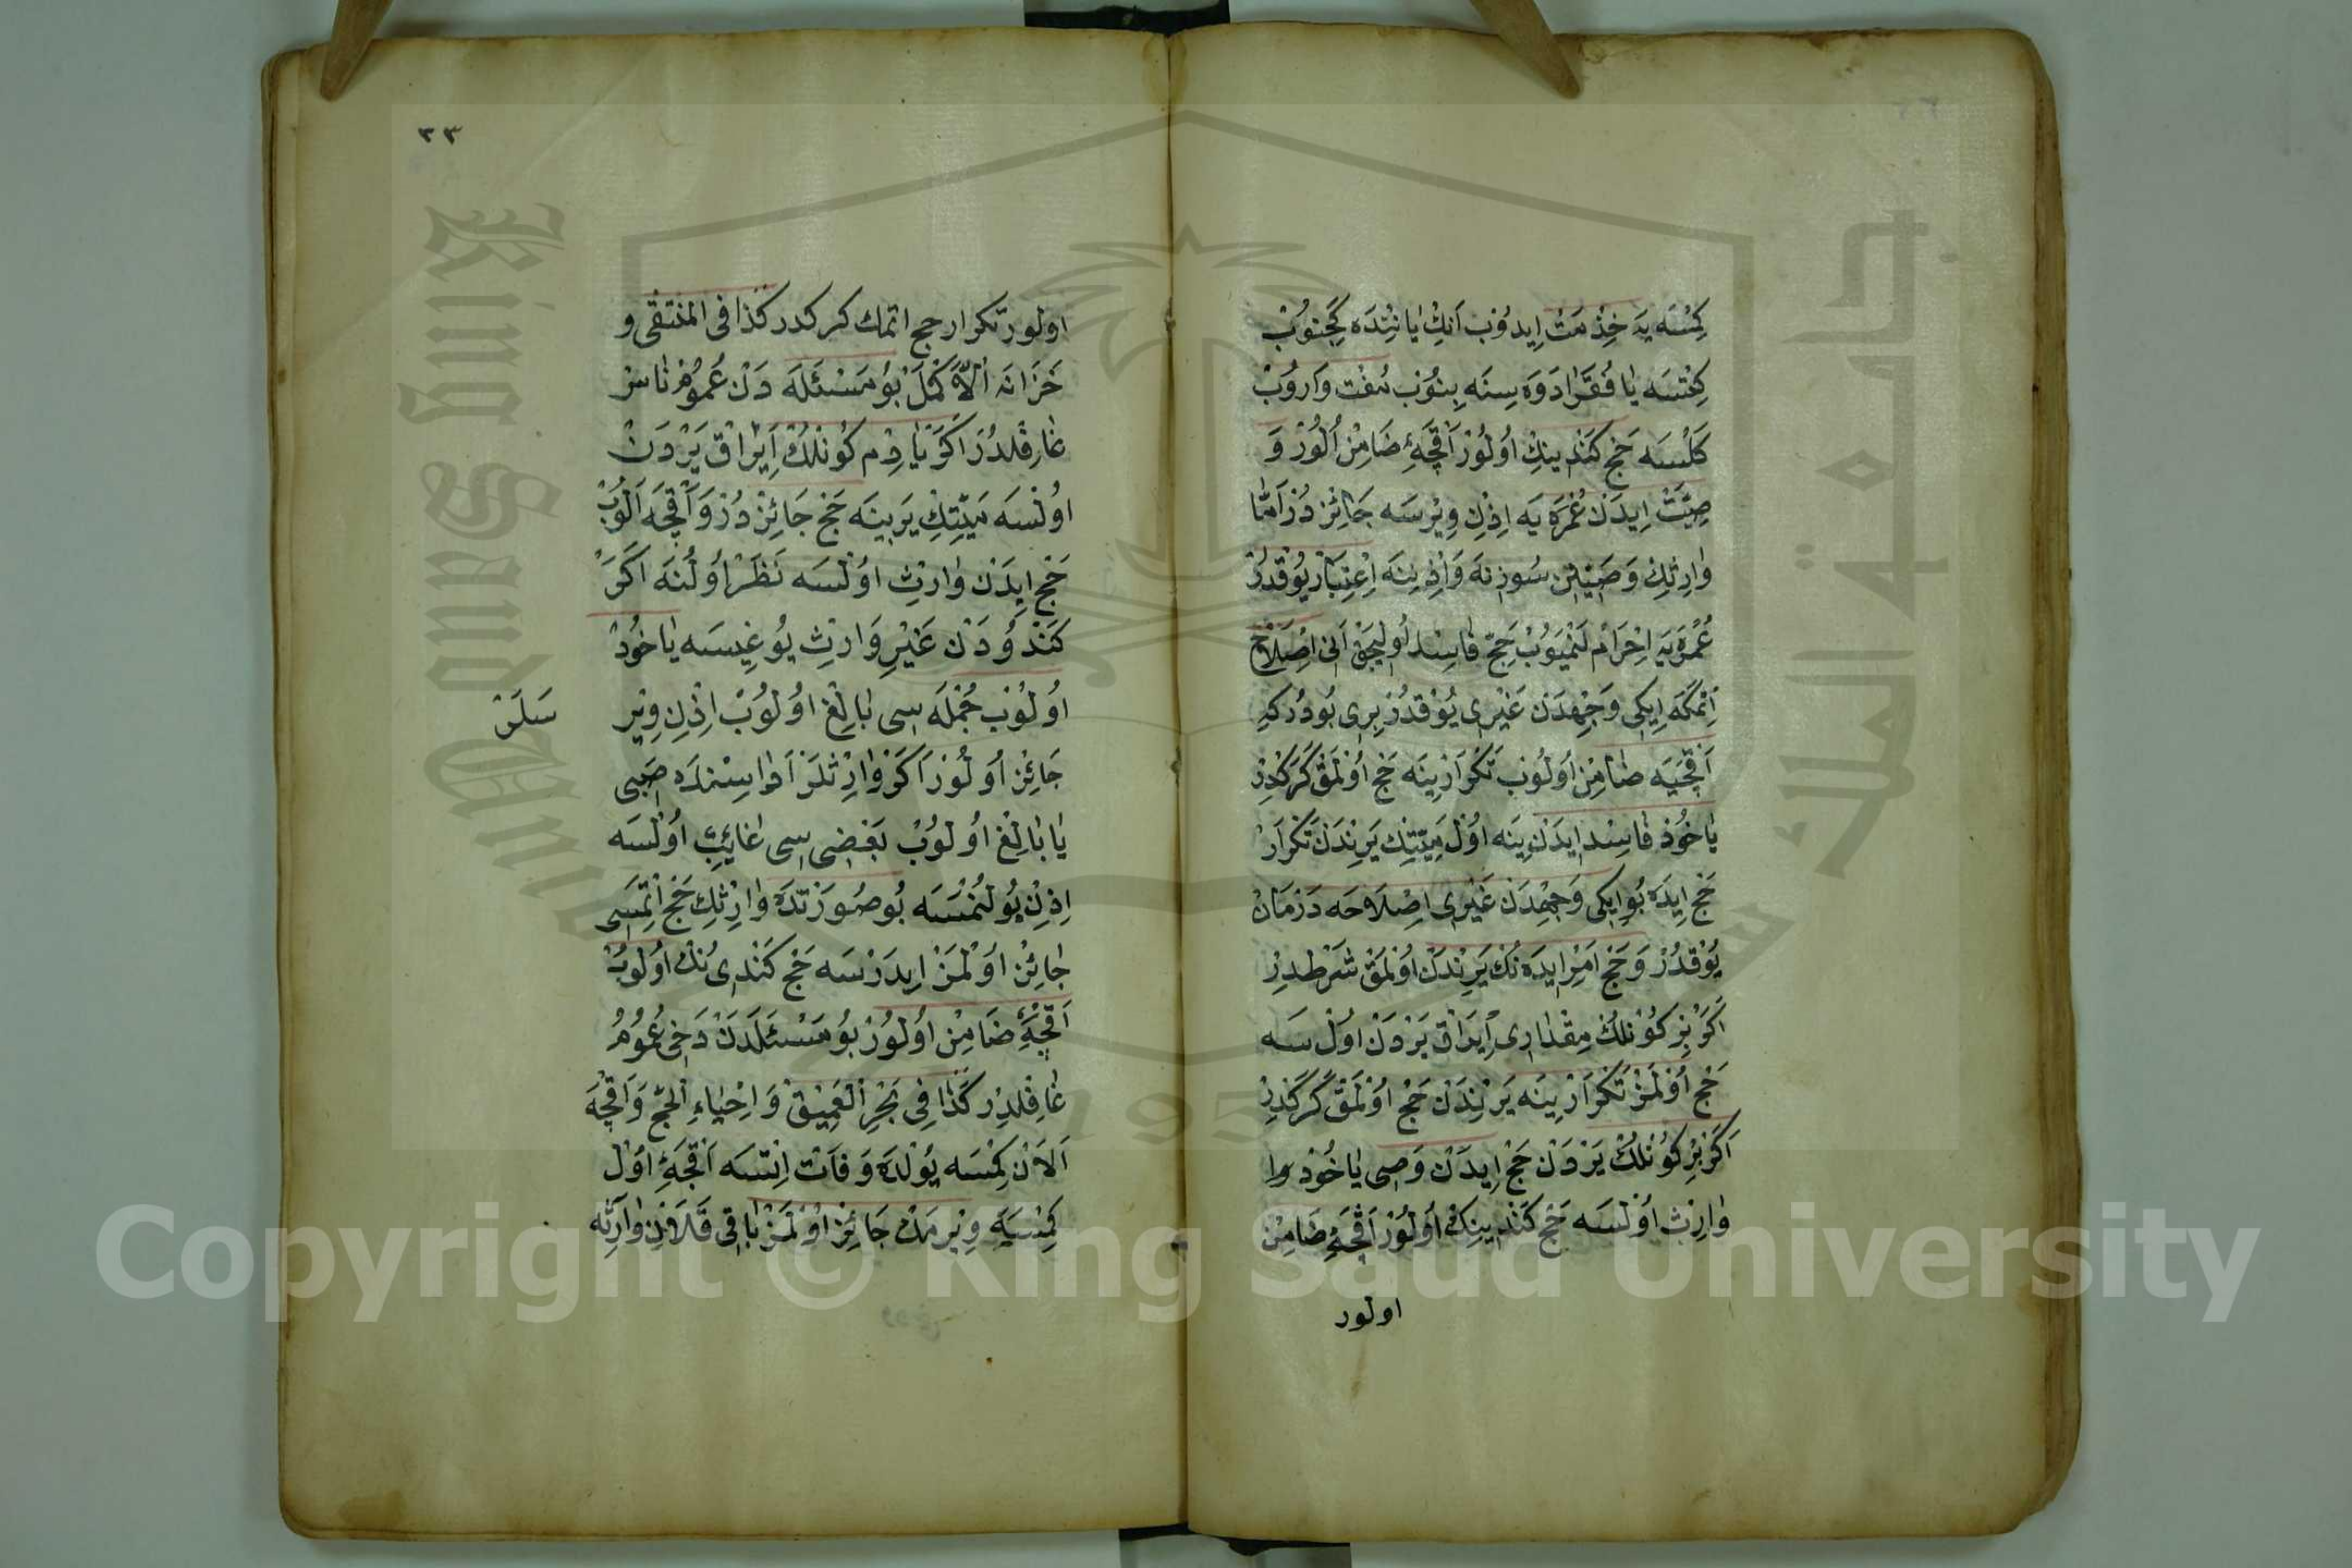 كِمْسَه يَه خِذْمَتْ اِيدُوْب اَنِكْ يَانِنْدَه كَچِنُوبْ
كِتْسَه يَا فُقَرَا دَوَه سِنَه بِنُوْب مُفْت وَارُوبْ
كَلْسَه حَجْ كَنْدِينِكْ اُولُوْرْ اَقْچَه‌ءِ ضَامِنْ اُلُورْ وَ
اِيدَنْ عُمْرَه يَه اِذِنْ وِيْرْسَه جَائِزْ دُرْ اَمَّا
وَارِثِكْ وَصِيْنِكْ سُوزِنَه وَاِذِنِنَه اِعْتِبَارْ يُوْقْدُرْ
عُمْرَه يَه اِحْرَامْ حَجّ فَاسِدْ اُولِيجَقْ اَنِى اِصْلَاحْ
اِتْمَكَه اِيكِى وَجِهْدَنْ غَيْرِى يُوْقْدُرْ بِرِى بُودُرْكِه
اَقْچَيَه ضَامِنْ اُولُوْب تَكْرَارْ يِنَه حَجْ اُوْلْمَقْ كَرَكْدِرْ
يَاخُوْدْ فَاسِدْ اِيدَنْ يِنَه اُوْلْ مَيِّتِكْ يَرِنْدَنْ تَكْرَارْ
حَجْ اِيدَه بُو اِيكِى وَجِهْدَنْ غَيْرِى اِصْلَاحَه دَرْمَانْ
يُوْقْدُرْ وَحَجْ اَمِرْ ايدَه نُكْ يَرِنْدَنْ اُوْلْمَقْ شَرْطْدِرْ
اَكَرْ بِرْ كُوْنْلُكْ مِقْدَارِى اَيْرَاقْ يَرْدَنْ اُوْلْسَه
حَجْ اُوْلْمَزْ تَكْرَارْ يِنَه يَرِنْدَنْ حَجْ اُوْلْمَقْ كَرَكْدِرْ
اَكَرْ بِرْ كُوْنْلُكْ يَرْدَنْ حَجْ اِيدَنْ وَصِى يَاخُوْدْ
وَارِثْ اُوْلْسَه حَجْ كَنْدِينِكْ اُولُوْرْ اَقْچَه‌ءِ ضَامِنْ
اولور
٣٣
اولور تكرار حج اتمك كركدر كذا فى المنتقى و
خَزَانَه اَلْاَكْمَلْ بُو مَسْئَلَه دَنْ عُمُومْ نَاسْ
غَافِلْدُرْ اَكَرْ يَارِمْ كُوْنْلُكْ اَيْرَاقْ يَرْدَنْ
اُوْلْسَه مَيِّتِكْ يَرِينَه حَجْ جَائِزْ دُرْ وَاَقْچَه اَلُوبْ
حَجْ اِيدَنْ وَارِثْ اُوْلْسَه نَظَرْ اُولُنَه اَكَرْ
كَنْدُودَنْ غَيْرِ وَارِثْ يُوغِيسَه يَاخُوْدْ
اُولُوْب جُمْلَه سِى بَالِغْ اُولُوبْ اِذِنْ وِيْر
سَلَرْ
جَائِزْ اُولُوْرْ اَكَرْ وَارِثْلَرْ اَرَاسِنْدَه صَبِى
يَا بَالِغْ اُولُوبْ بَعْضِى سِى غَائِبْ اُوْلْسَه
اِذِنْ بُولُنْمَسَه بُو صُورَتْدَه وَارِثِكْ حَجْ اِتْمَسِى
جَائِزْ اُوْلْمَزْ اِيدَرْسَه حَجْ كَنْدِى نُكْ اُولُوبْ
اَقْچَه‌ءِ ضَامِنْ اُولُوْرْ بُو مَسْئَلَه‌دَنْ دَخِى عُمُومُ
غَافِلْدِرْ كَذَا فِى بَحْرِ الْعَمِيْقْ وَاِحْيَاءِ الْحَجّ وَاَقْچَه
اَلَانْ كِمْسَه يُوْلْدَه وَفَاتْ اِتْسَه اَقْچَه‌ءِ اُوْلْ
كِمْسَيَه وِيْرمَكْ جَائِزْ اُوْلْمَزْ بَاقِى قَلَانِنْ وَارِثْنَه
Copyright © King Saud University
جامعة الملك سعود
King Saud University
1957